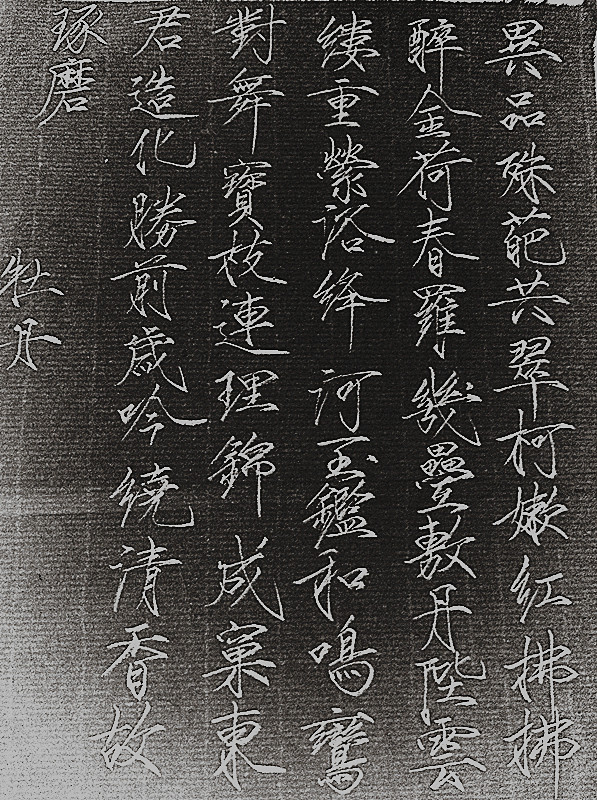 異品殊葩共翠柯嫩紅拂拂
醉金荷春羅幾疊敷丹陛雲
縷重縈浴絳河玉鑑和鳴鸞
對舞寶枝連理錦成窠東
君造化勝前歲吟繞清香故
琢磨
牡丹